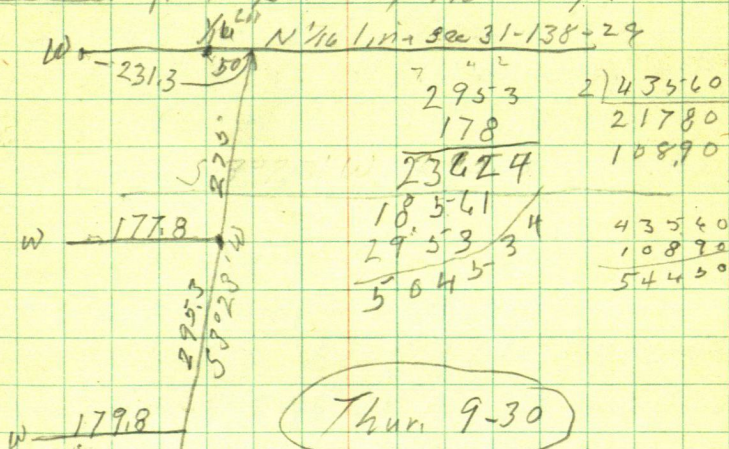 1/16 Cor
W N 1/16 line sec 31-138-29
231.3 50
275
2953
178
23624
18 541
2953 4
5 0 4 5 3
2)43560
21780
10890
43560
10890
54450
W 177.8 W
295.3
S 3° 23' W
W 179.8
Thur. 9-30